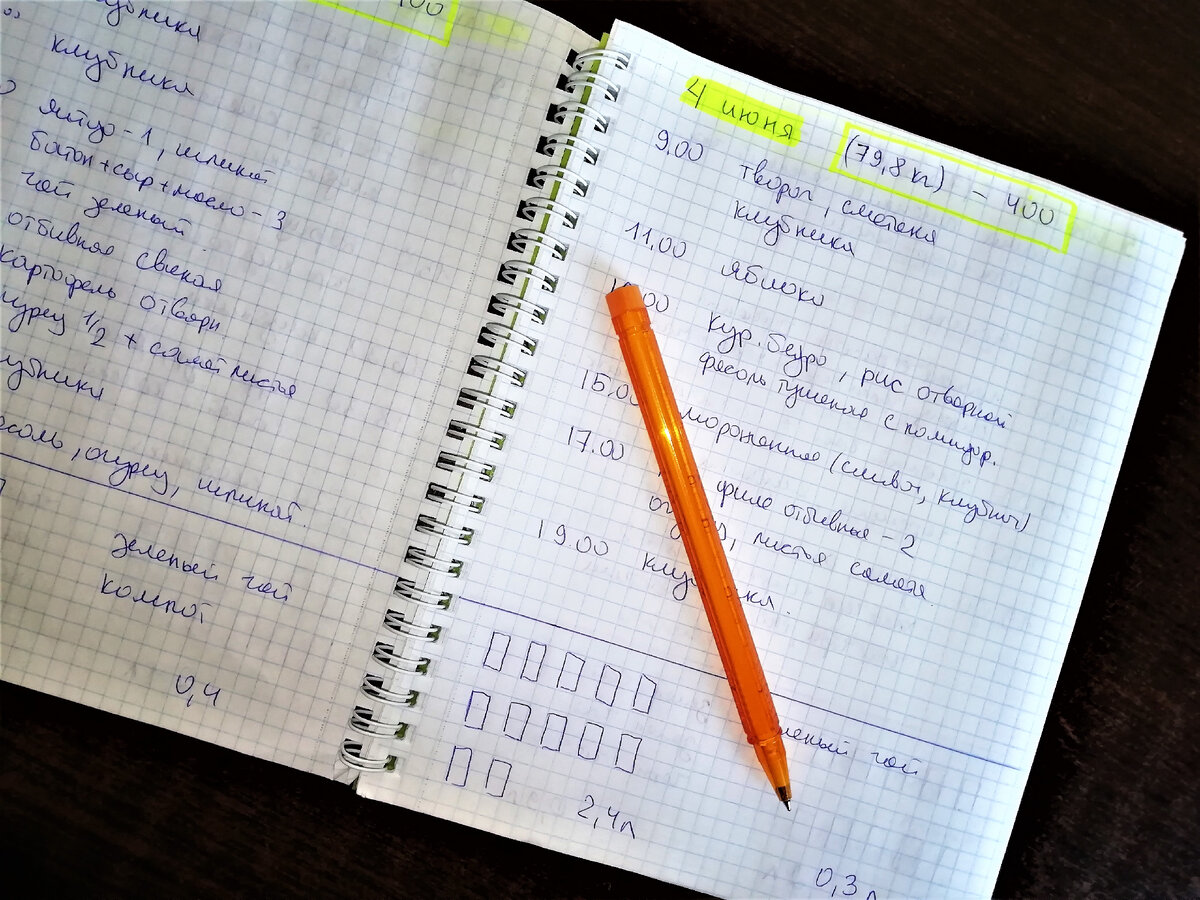 клубника
яйцо - 1, шпинат
батон + сыр + масло - 3
чай зеленый
отбивная свиная
картофель отварн
1/2 + салат листья
огурец, шпинат.
зеленый чай
компот
0,4
4 июня
(79,8 кг) - 400
9.00 творог, сметана
клубника
11.00 яблоко
кур. бедро, рис отварной
фасоль тушеная с помидор.
15.00 мороженное (сливоч, клубнич)
17.00 филе отбивные - 2
листья салата
19.00
чай
2,4л
0,3л